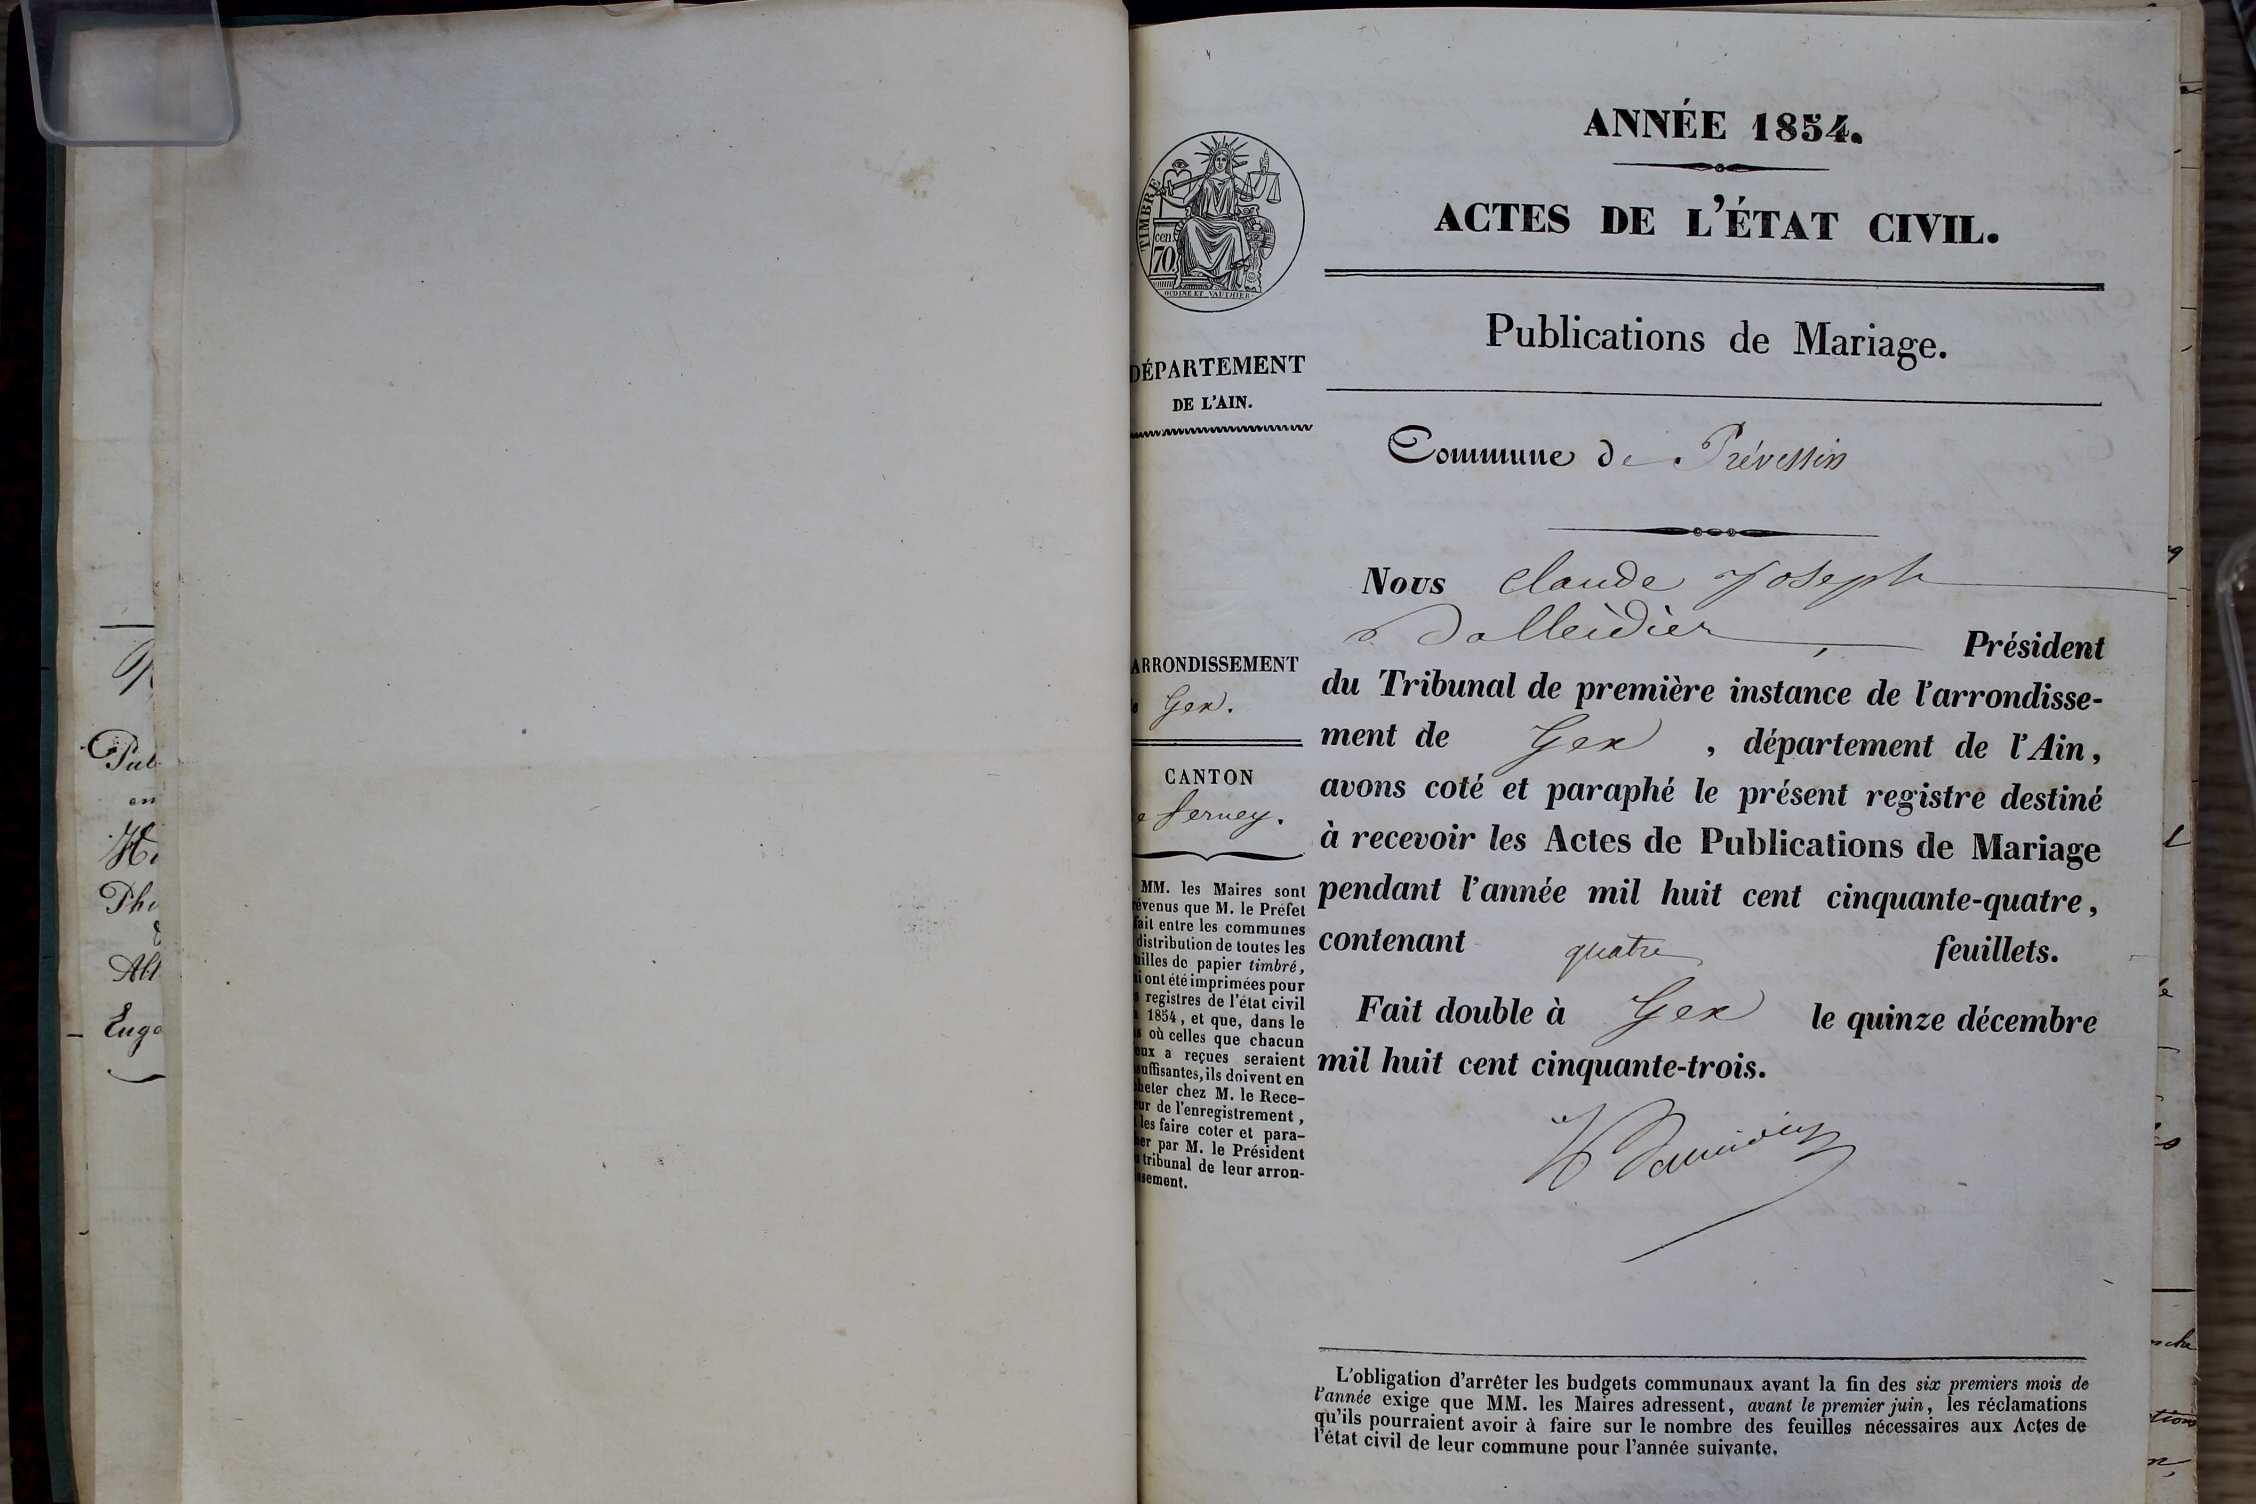 Pub
en
Phi
Alt
Euge
ANNÉE 1854.
ACTES DE L'ÉTAT CIVIL.
TIMBRE
cen.
70
OUDINÉ ET VAUTHIER
Publications de Mariage.
DÉPARTEMENT
DE L'AIN.
Commune de Prévessin
Nous Claude Joseph
Président
du Tribunal de première instance de l'arrondisse-
ment de Gex, département de l'Ain,
avons coté et paraphé le présent registre destiné
à recevoir les Actes de Publications de Mariage
pendant l'année mil huit cent cinquante-quatre,
contenant quatre feuillets.
Fait double à Gex le quinze décembre
mil huit cent cinquante-trois.
ARRONDISSEMENT
e Gex.
CANTON
e Ferney.
MM. les Maires sont
révenus que M. le Préfet
fait entre les communes
distribution de toutes les
uilles de papier timbré,
ui ont été imprimées pour
s registres de l'état civil
1854, et que, dans le
s où celles que chacun
eux a reçues seraient
suffisantes, ils doivent en
cheter chez M. le Rece-
eur de l'enregistrement,
les faire coter et para-
her par M. le Président
u tribunal de leur arron-
issement.
L'obligation d'arrêter les budgets communaux avant la fin des six premiers mois de
l'année exige que MM. les Maires adressent, avant le premier juin, les réclamations
qu'ils pourraient avoir à faire sur le nombre des feuilles nécessaires aux Actes de
l'état civil de leur commune pour l'année suivante.